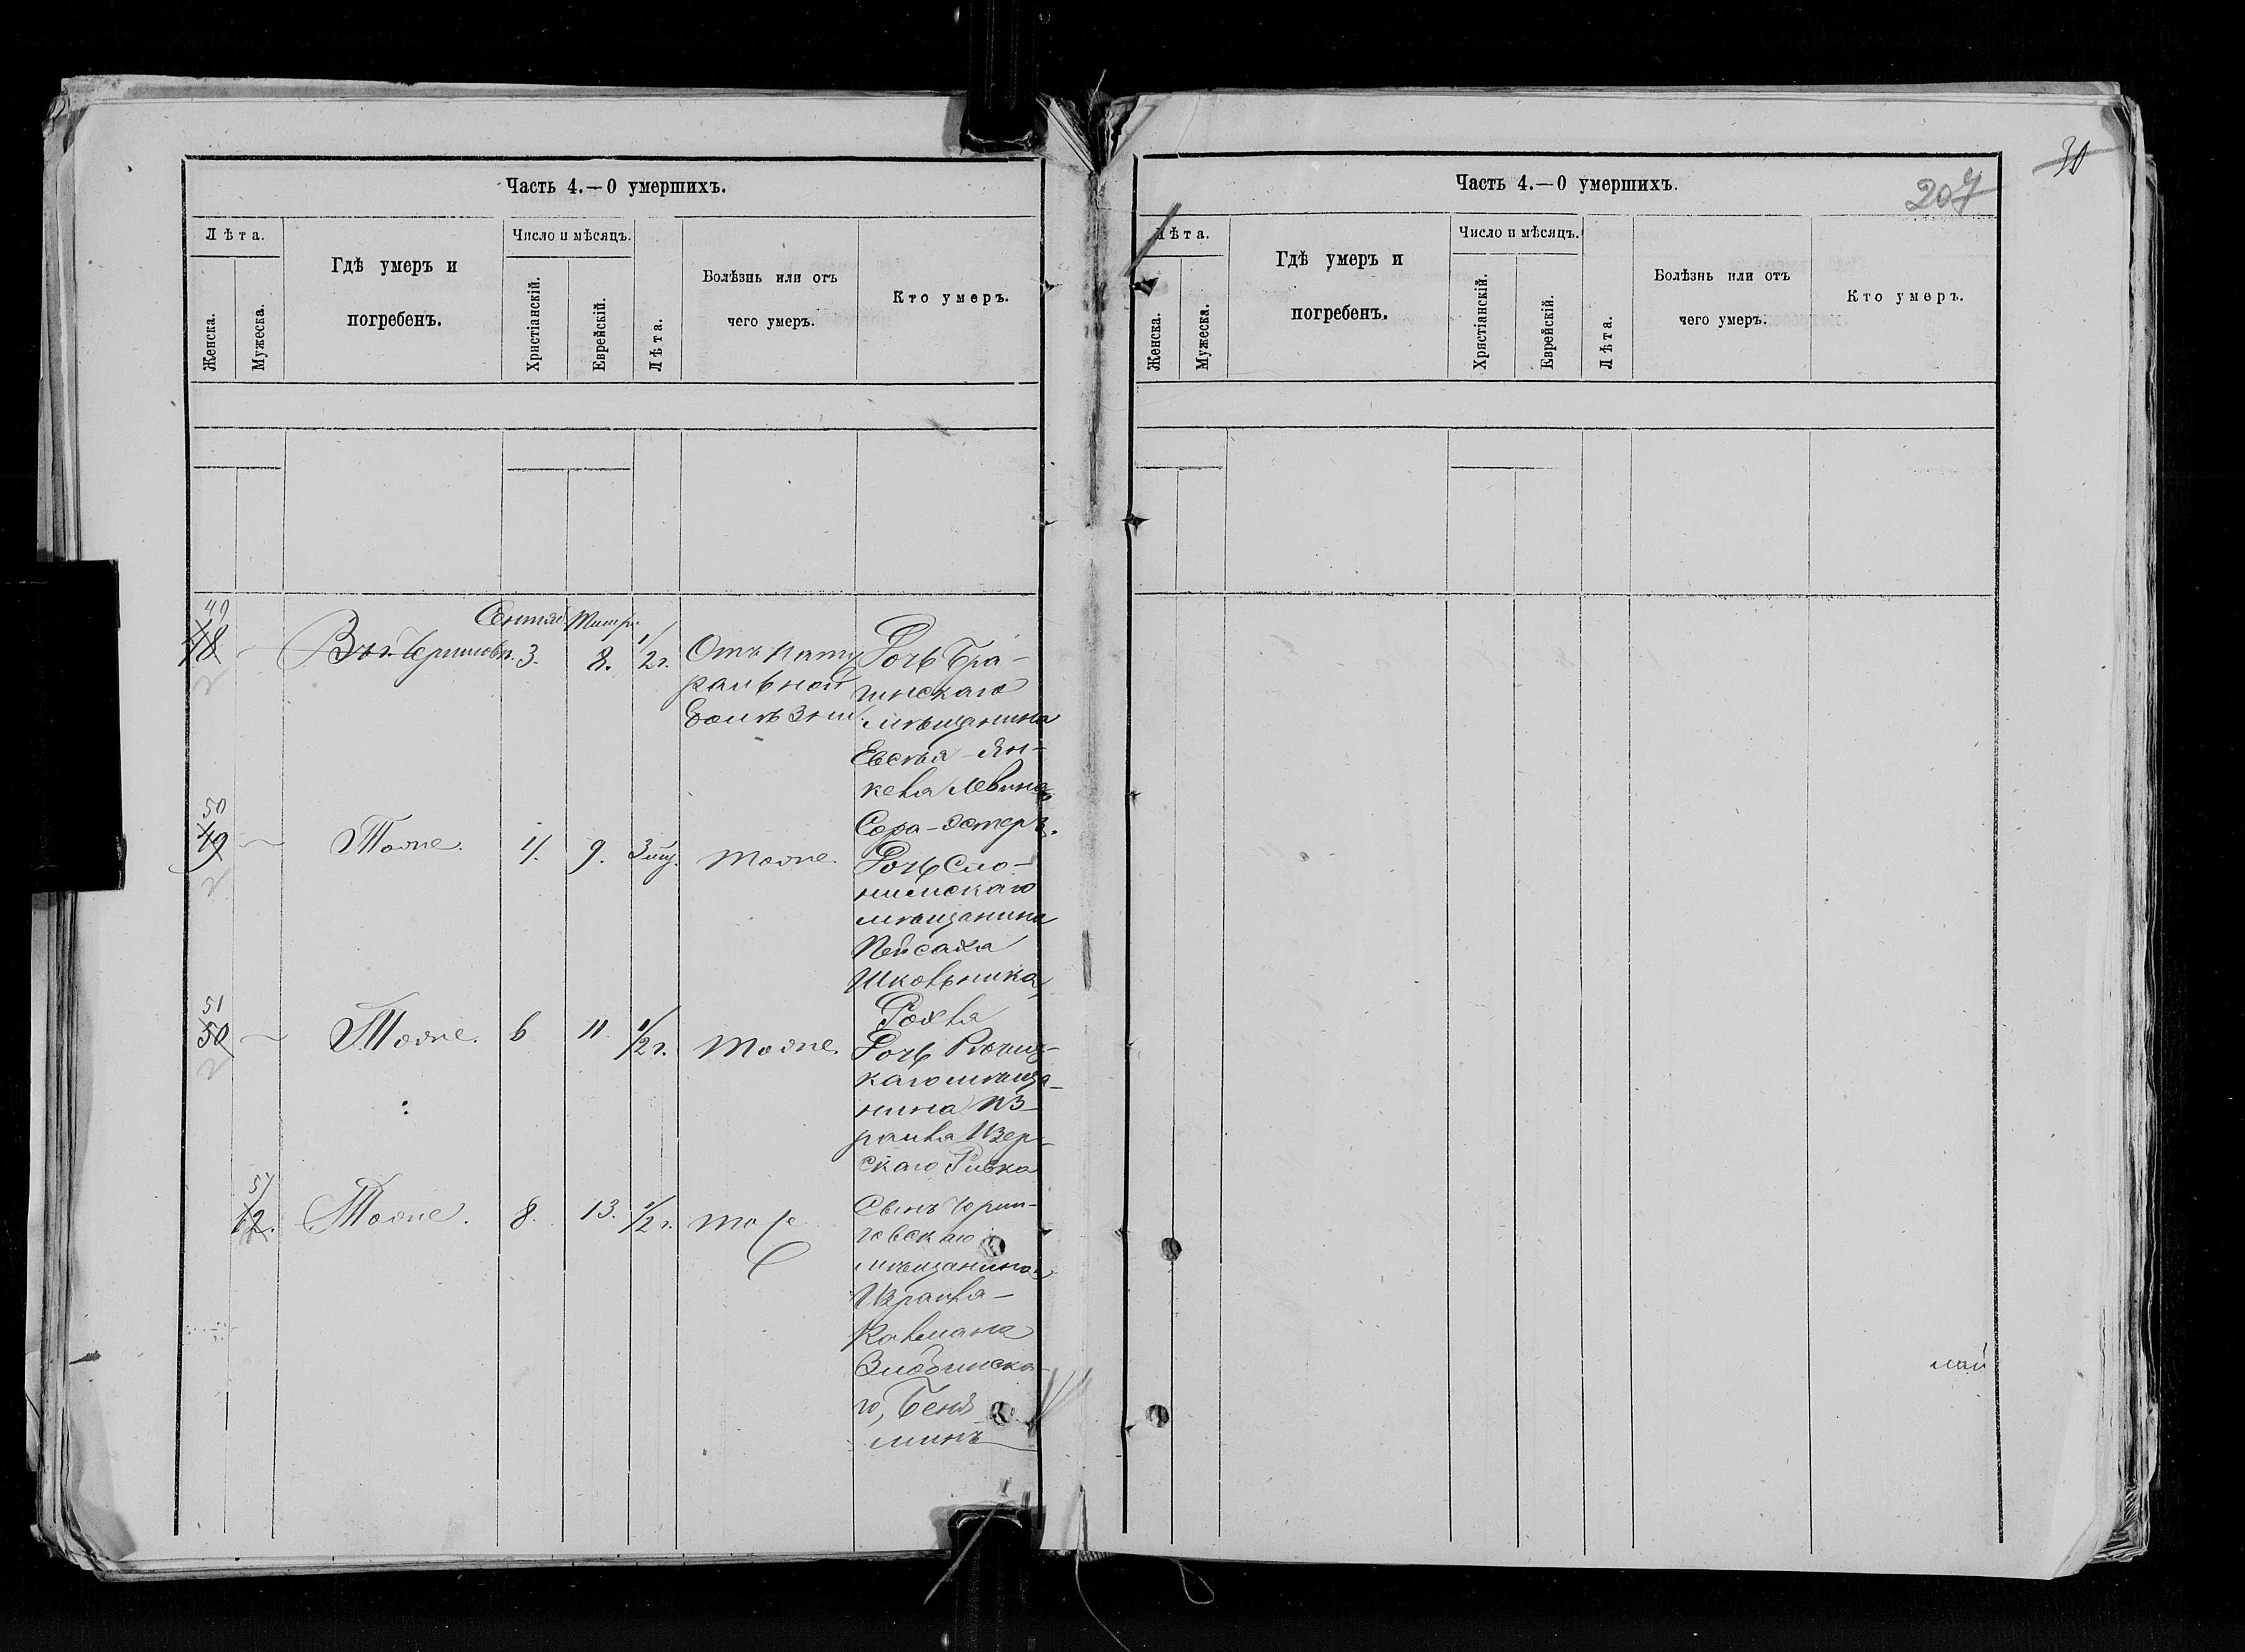 Часть 4.—О умершихъ.
Лѣта.
Женска.
Мужеска.
Гдѣ умеръ и
погребенъ.
Число и мѣсяцъ.
Христіанскій.
Еврейскій.
Лѣта.
Болѣзнь или отъ
чего умеръ.
Кто умеръ.
49
48
Въ г. Чернигов.
Сентяб
Тишри
3.
8.
1/2 г.
Отъ нату
ральной
болѣзни
Дочь
мѣщанина
Евсѣя-Ян-
келя Левина
Сора-Эстеръ.
50
49
Тоже.
4.
9.
3 мц.
тоже.
Дочь Сло-
нимскаго
мѣщанина
Пейсаха
Школьника,
Рохля
51
50
Тоже.
6
11
1/2 г.
тоже.
Дочь Рѣчиц-
каго мѣща-
нина Из-
раиля Изер-
скаго Ривка
51
12.
Тоже.
8.
13.
1/2 г.
то же
Сынъ Черни-
говскаго
мѣщанина
Израиля-
Калмана
Злобинска-
го, Беня
минъ
Часть 4.—О умершихъ.
207
30
Лѣта.
Женска.
Мужеска.
Гдѣ умеръ и
погребенъ.
Число и мѣсяцъ.
Христіанскій.
Еврейскій.
Лѣта.
Болѣзнь или отъ
чего умеръ.
Кто умеръ.